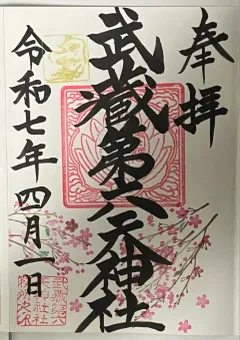 奉拝
武蔵第六天神社
令和七年四月一日